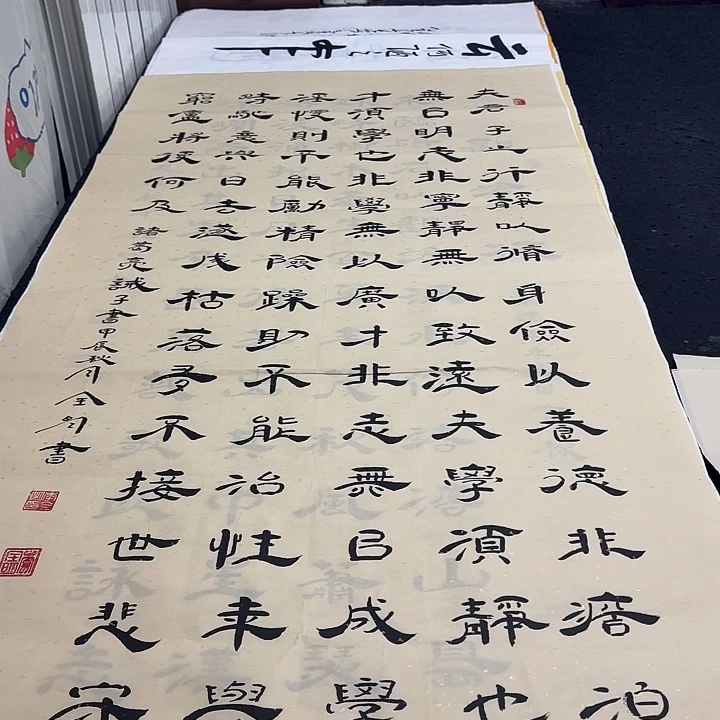 夫君子之行靜以脩身儉以養德非澹泊
無以明志非寧靜無以致遠夫學須靜也
才須學也非學無以廣才非志無以成學
淫慢則不能勵精險躁則不能治性年與
時馳意與日去遂成枯落多不接世悲守
窮廬將復何及
諸葛亮誡子書甲辰秋月全書